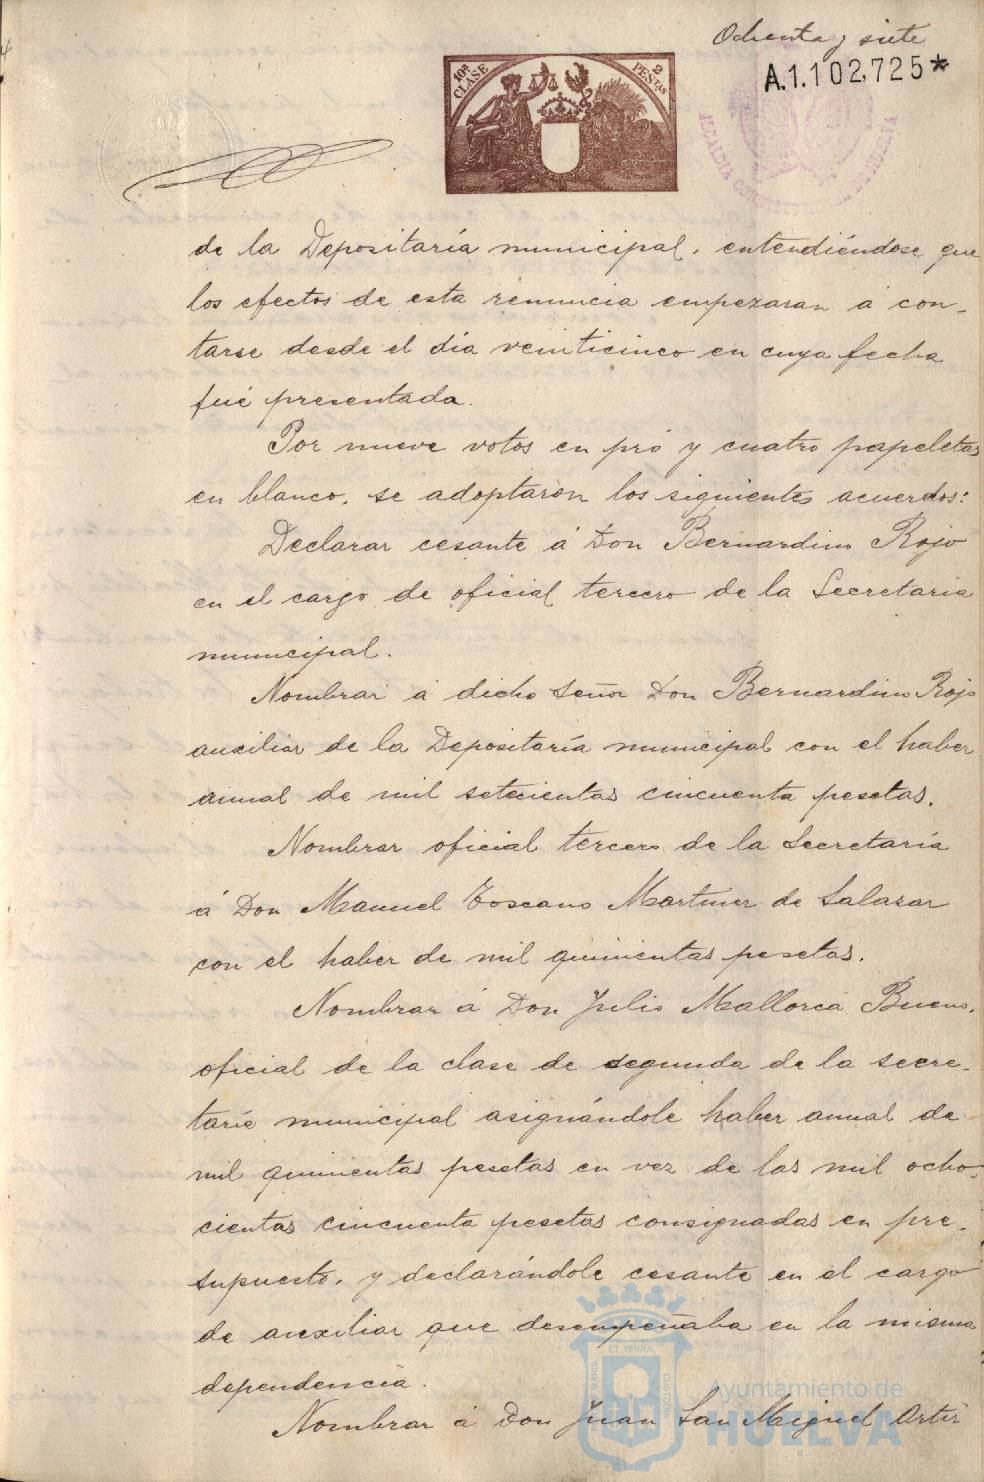 Ochenta y siete
A.1.102,725*
10ª CLASE
2 PESTAS
ALCALDIA CONST DE HUELVA
de la Depositaría municipal, entendiéndose que
los efectos de esta renuncia empezaran á con-
tarse desde el día veinticinco en cuya fecha
fué presentada.
Por nueve votos en pró y cuatro papeletas
en blanco, se adoptaron los siguientes acuerdos:
Declarar cesante á Don Bernardino Rojo
en el cargo de oficial tercero de la Secretaria
municipal.
Nombrar á dicho Señor Don Bernardino Rojo
auxiliar de la Depositaría municipal con el haber
anual de mil setecientas cincuenta pesetas.
Nombrar oficial tercero de la Secretaría
á Don Manuel Toscano Martinez de Salazar
con el haber de mil quinientas pesetas.
Nombrar á Don Julio Mallorca Bueno,
oficial de la clase de segunda de la secre-
taría municipal asignándole haber anual de
mil quinientas pesetas en vez de las mil ocho-
cientas cincuenta pesetas consignadas en pre-
supuesto, y declarándole cesante en el cargo
de auxiliar que desempeñaba en la misma
dependencia.
Nombrar á Don Juan San Miguel
Ayuntamiento de
HUELVA